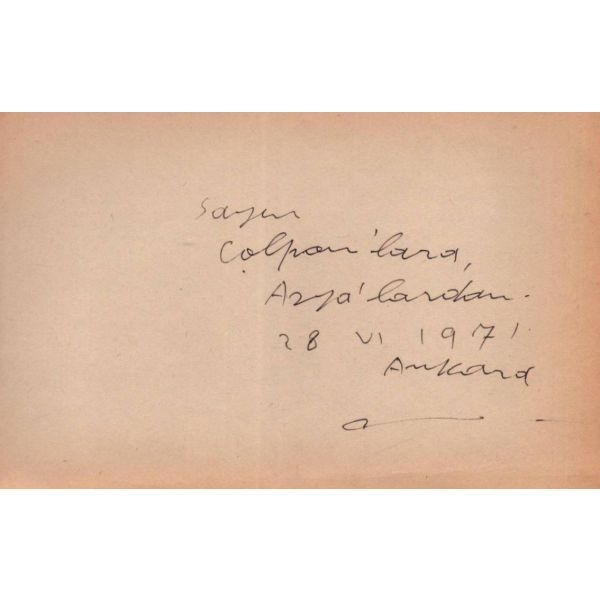 Sayın
Çolpan'lara,
Arya'lardan.
28 VI 1971
Ankara